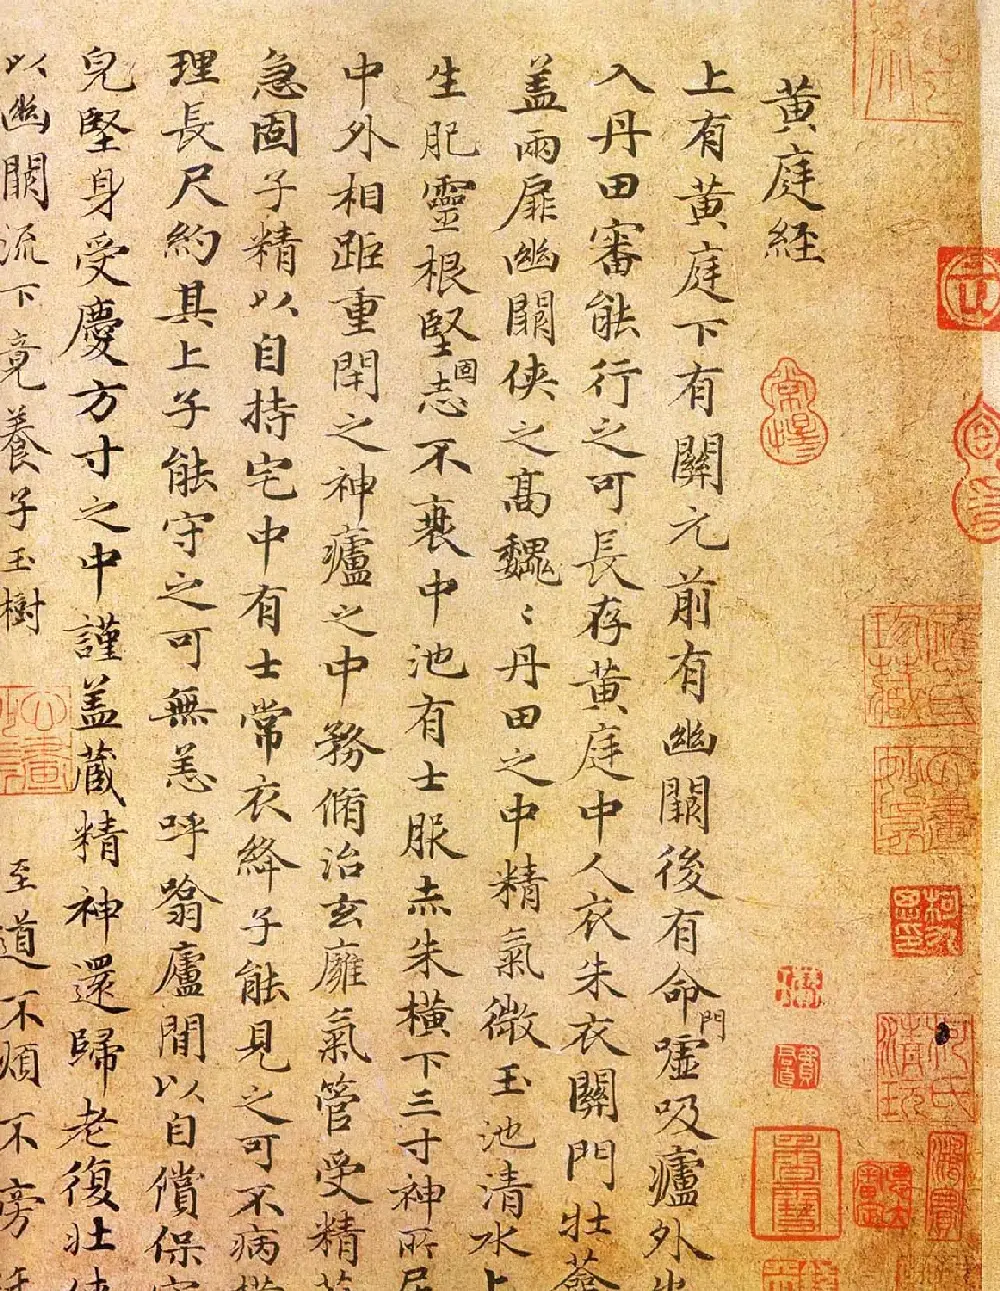 黄庭経
上有黄庭下有關元前有幽闕後有命門噓吸廬外
入丹田審能行之可長存黄庭中人衣朱衣關門壯
盖兩扉幽闕侠之髙魏〻丹田之中精氣微玉池清水上
生肥靈根堅固志不衰中池有士服赤朱横下三寸神所居
中外相距重閇之神廬之中務脩治玄廱氣管受精
急固子精以自持宅中有士常衣絳子能見之可不病
理長尺約其上子能守之可無恙呼翕廬間以自償保
皃堅身受慶方寸之中謹盖蔵精神還歸老復壯侠
以幽闕流下竟養子玉樹 至道不煩不旁